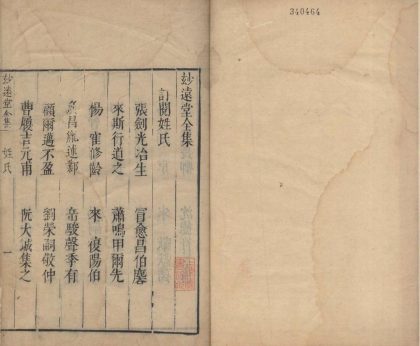 340464
妙遠堂全集
訂閱姓氏
張劍光冶生
冒愈昌伯麐
來斯行道之
蕭鳴甲爾先
楊崔修齡
來復陽伯
昌
岳駿聲季有
顧爾邁不盈
劉榮嗣敬仲
曹履吉元甫
阮大鋮集之
妙遠堂全集
姓氏
一